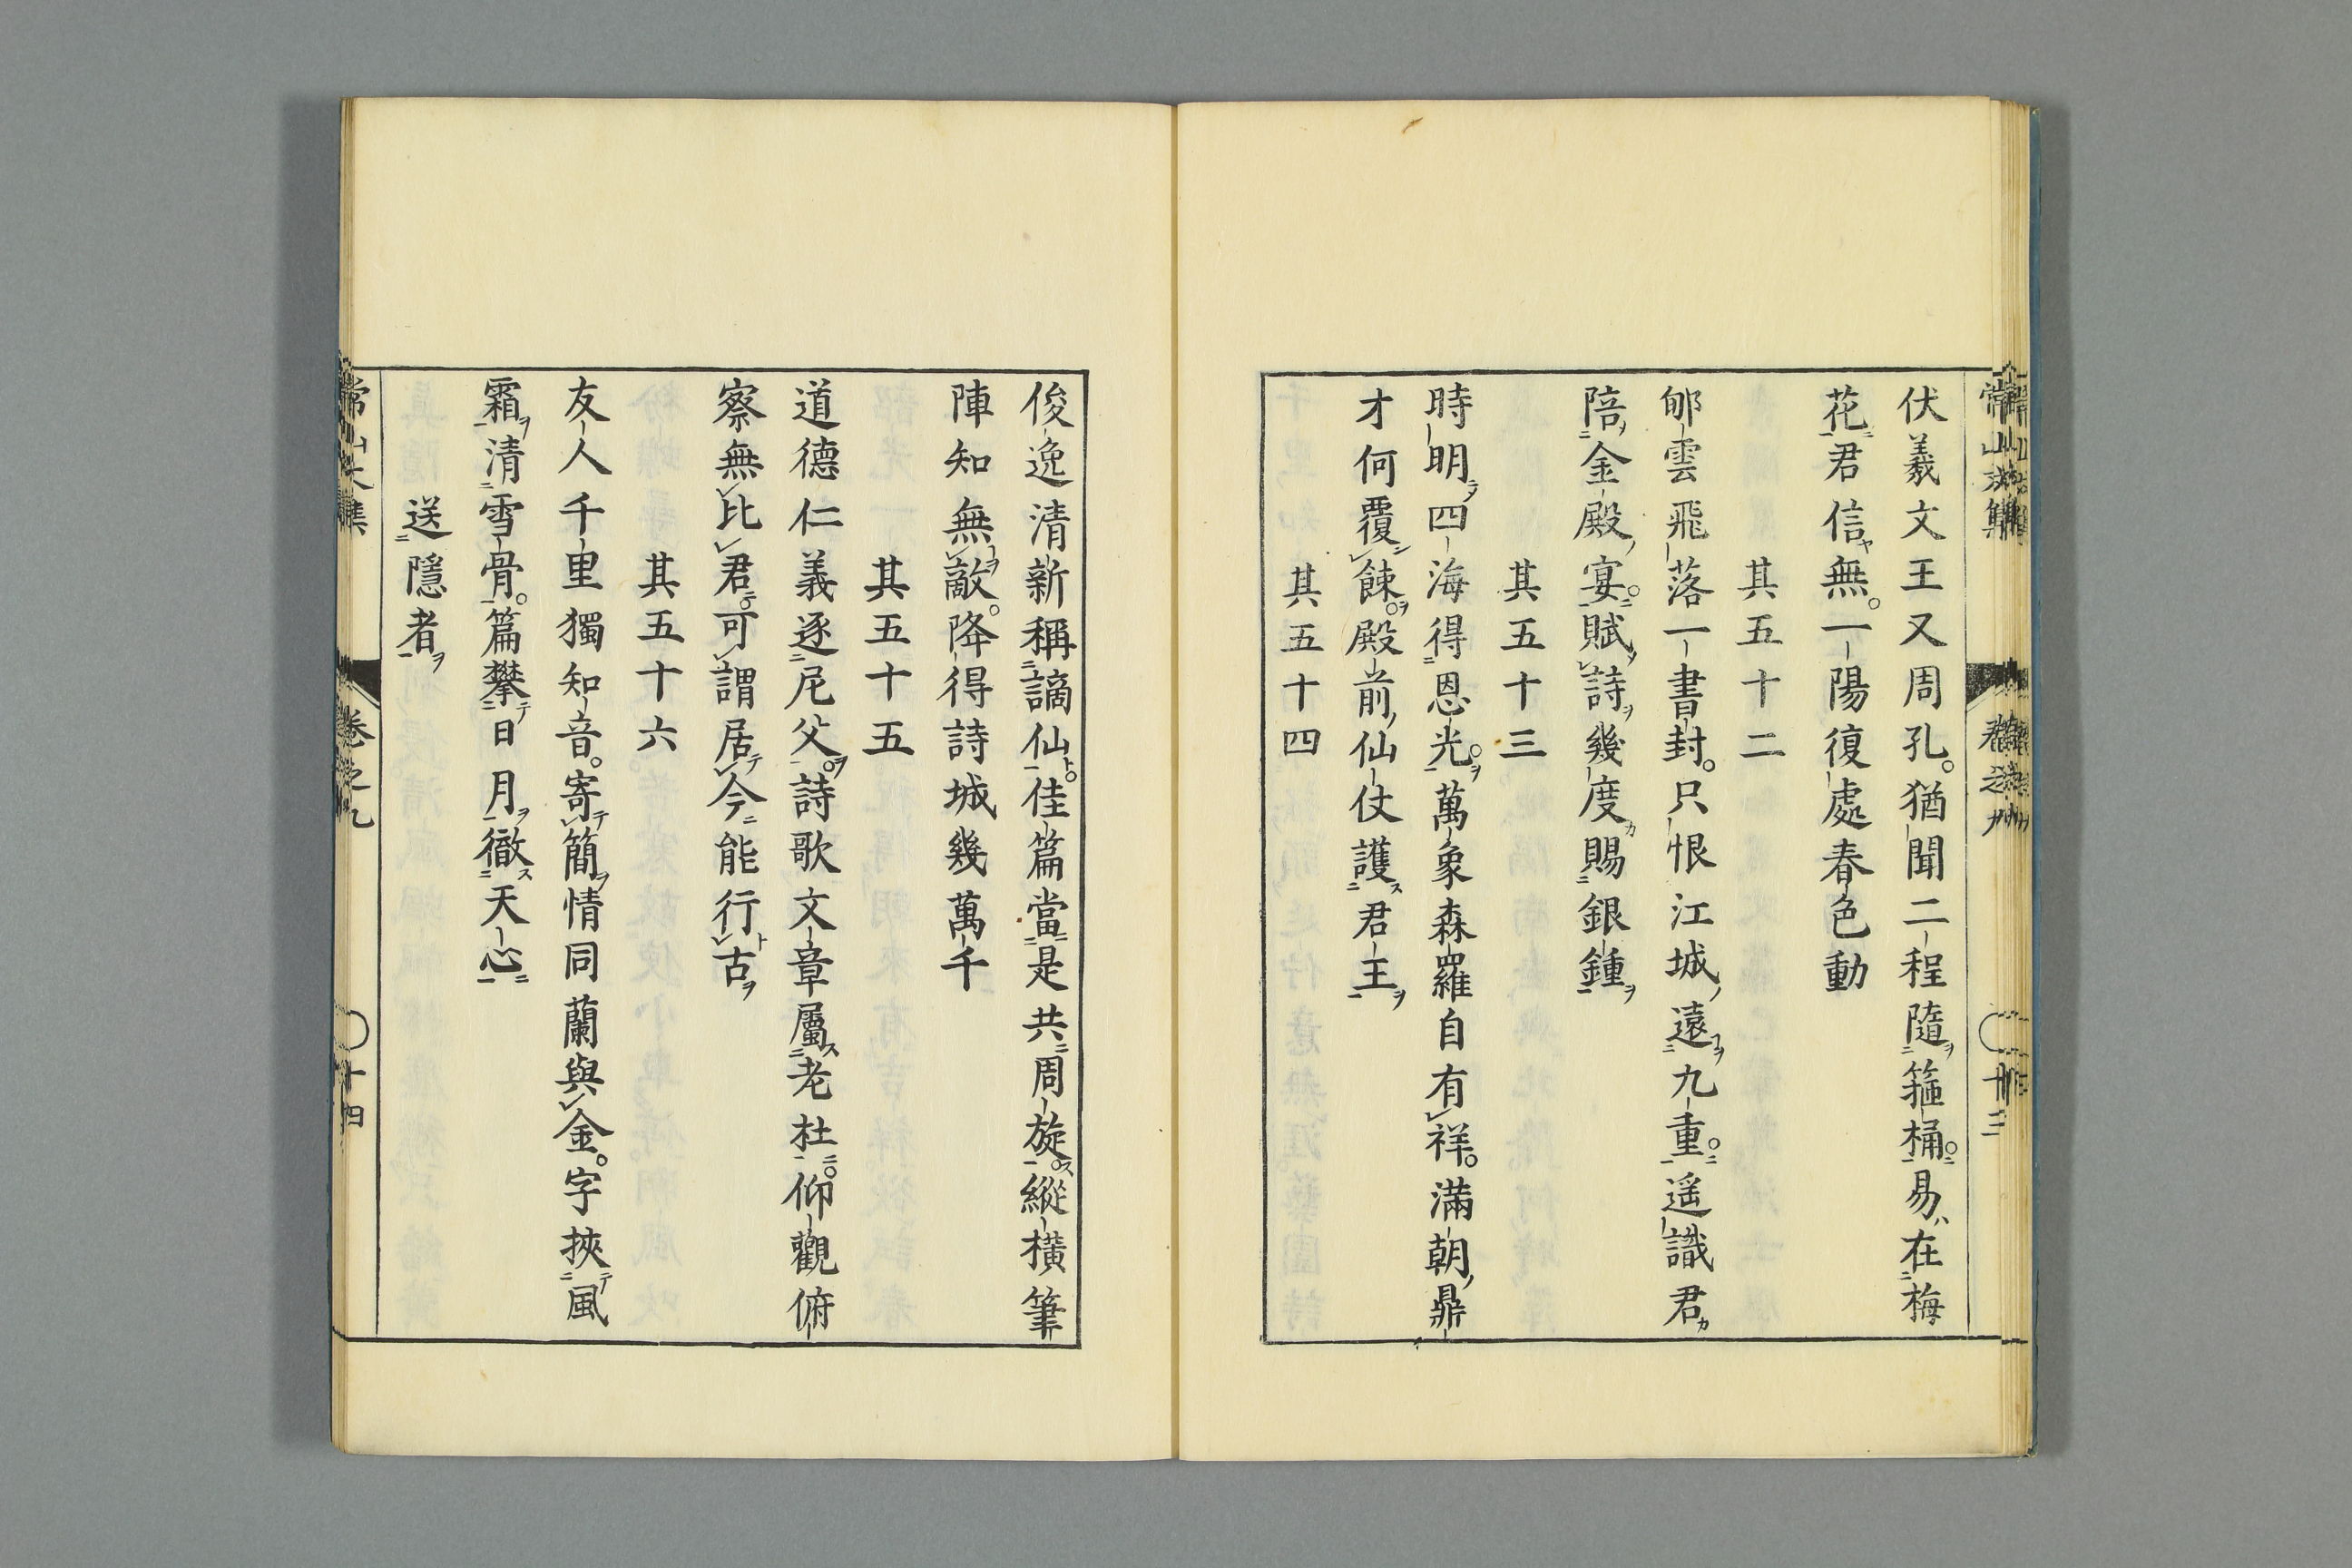 伏羲文王又周孔。猶聞二程隨箍桶。易在梅
花君信無。一陽復處春色動
其五十二
郇雲飛落一書封。只恨江城遠九重。遥識君
陪金殿宴。賦詩幾度賜銀鍾
其五十三
時明四海得恩光。萬象森羅自有祥。滿朝鼎
才何覆餗。殿前仙仗護君王
其五十四
俊逸清新稱謫仙。佳篇當是共周旋。縱橫筆
陣知無敵。降得詩城幾萬千
其五十五
道德仁義逐尼父。詩歌文章屬老杜。仰觀俯
察無比君。可謂居今能行古
其五十六
友人千里獨知音。寄簡情同蘭與金。字挾風
霜清雪骨。篇攀日月徹天心
送隱者
常山文集
卷之九
十四